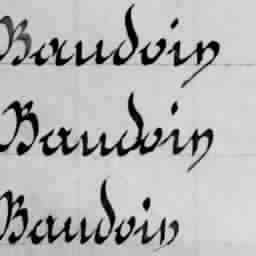 Baudoin
Baudoin
Baudoin